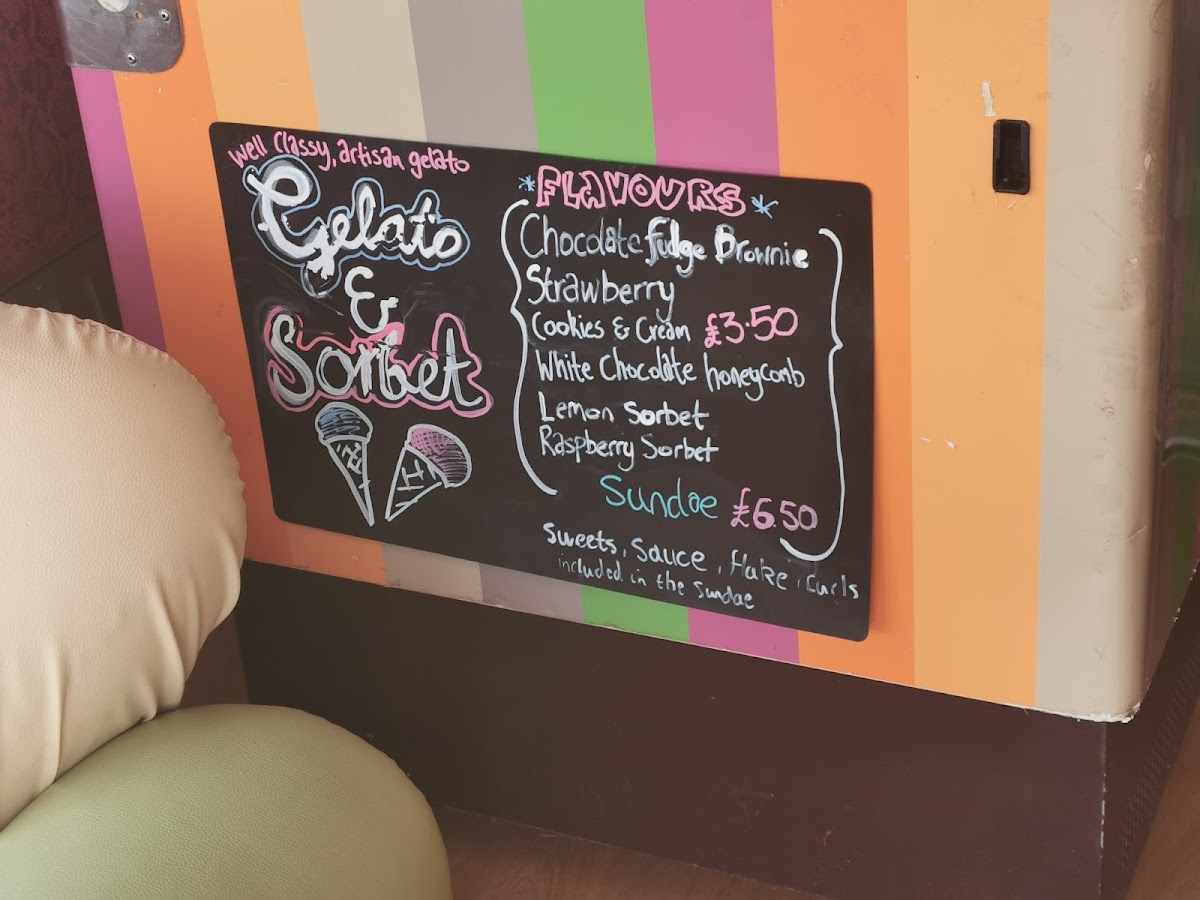 well classy, artisan gelato
Gelato
&
Sorbet
FLAVOURS
Chocolate fudge Brownie
Strawberry
Cookies & Cream £3.50
White Chocolate honeycomb
Lemon Sorbet
Raspberry Sorbet
Sundae £6.50
Sweets, Sauce, flake, Curls
included in the Sundae